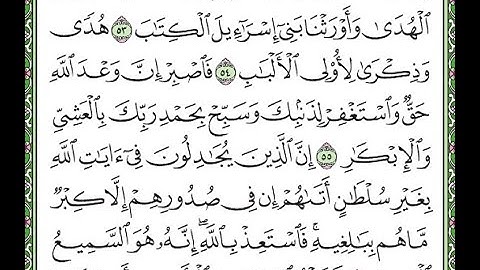 ٱلۡهُدَىٰ وَأَوۡرَثۡنَا بَنِيٓ إِسۡرَٰٓءِيلَ ٱلۡكِتَٰبَ ٥٣ هُدٗى
وَذِكۡرَىٰ لِأُوْلِي ٱلۡأَلۡبَٰبِ ٥٤ فَٱصۡبِرۡ إِنَّ وَعۡدَ ٱللَّهِ
حَقّٞ وَٱسۡتَغۡفِرۡ لِذَنۢبِكَ وَسَبِّحۡ بِحَمۡدِ رَبِّكَ بِٱلۡعَشِيِّ
وَٱلۡإِبۡكَٰرِ ٥٥ إِنَّ ٱلَّذِينَ يُجَٰدِلُونَ فِيٓ ءَايَٰتِ ٱللَّهِ
بِغَيۡرِ سُلۡطَٰنٍ أَتَىٰهُمۡ إِن فِي صُدُورِهِمۡ إِلَّا كِبۡرٞ
مَّا هُم بِبَٰلِغِيهِۚ فَٱسۡتَعِذۡ بِٱللَّهِۖ إِنَّهُۥ هُوَ ٱلسَّمِيعُ